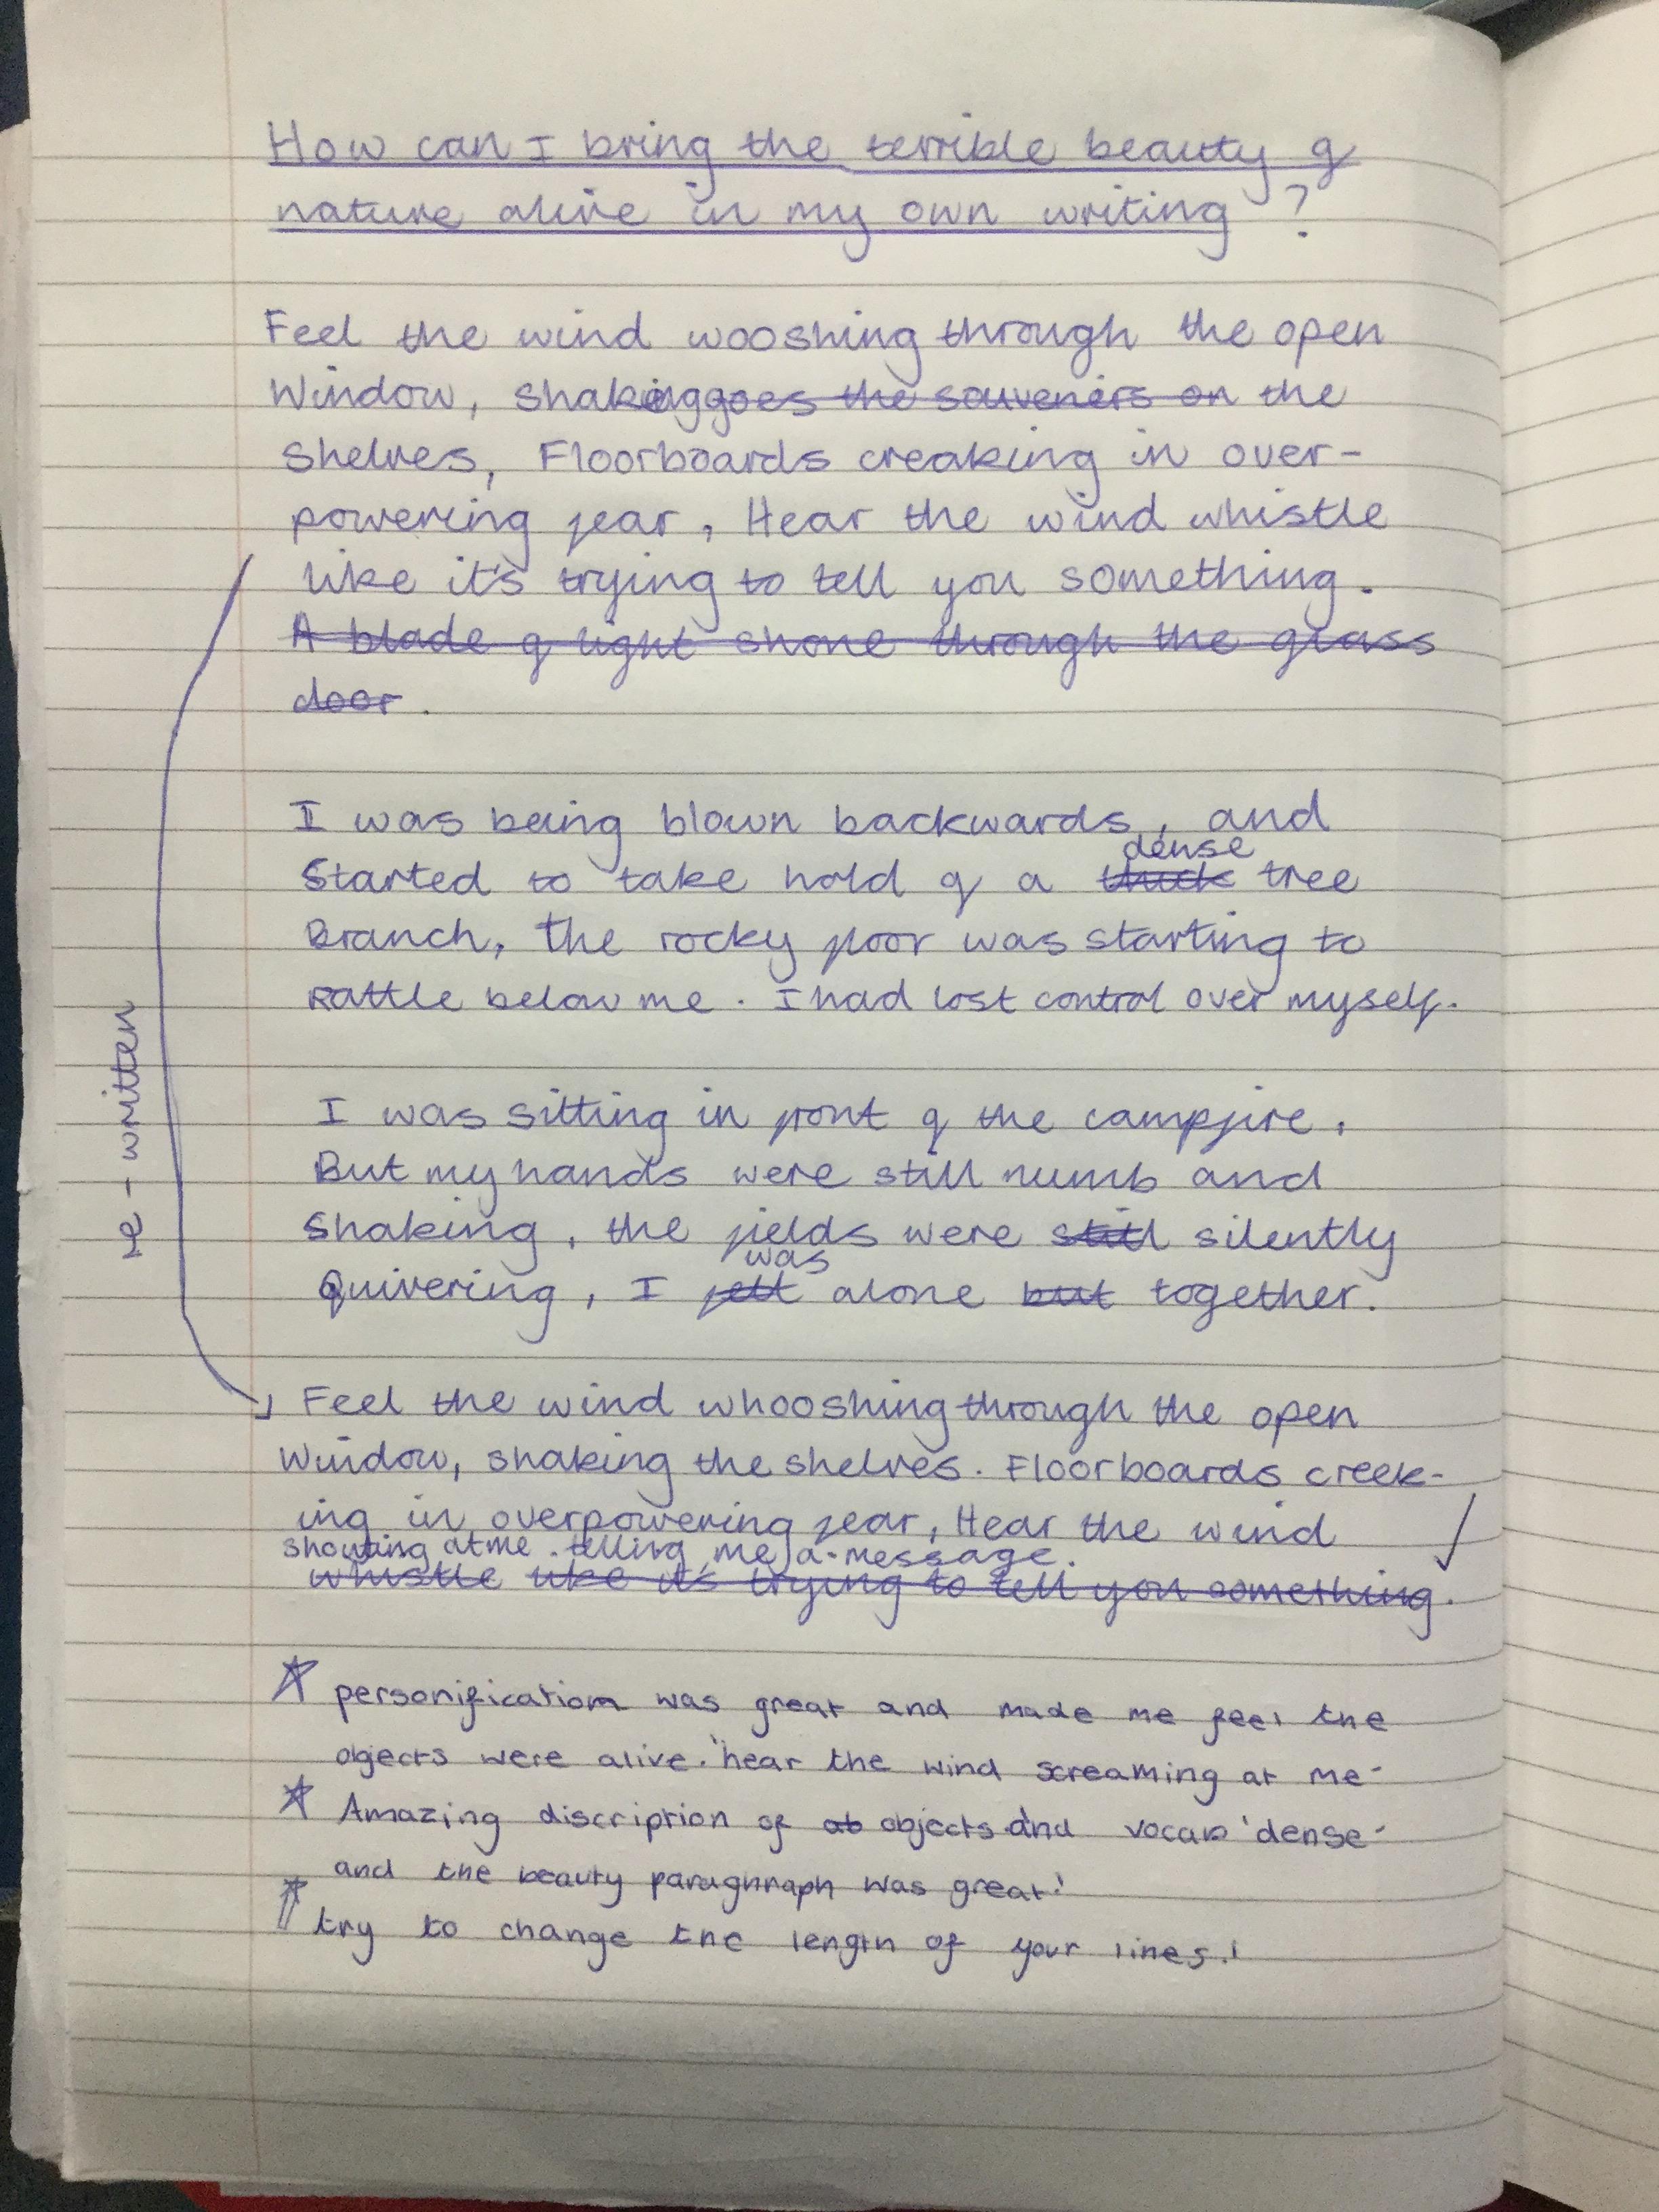 How can I bring the terrible beauty of
nature alive in my own writing?
Feel the wind wooshing through the open
Window, shaking goes the souveneirs on the
Shelves, Floorboards creaking in over-
powering fear, Hear the wind whistle
like it's trying to tell you something.
A blade of light shone through the glass
door.
I was being blown backwards, and
dense
Started to take hold of a thick tree
Branch, the rocky floor was starting to
Rattle below me. I had lost control over myself.
I was sitting in front of the campfire,
But my hands were still numb and
Shaking, the fields were still silently
was
Quivering, I felt alone but together.
re-written
Feel the wind whooshing through the open
Window, shaking the shelves. Floorboards creek-
ing in overpowering fear, Hear the wind
shouting at me. telling me a message.
whistle like it's trying to tell you something.
personification was great and made me feel the
objects were alive. "hear the wind screaming at me"
Amazing discription of ob objects and vocab 'dense'
and the beauty paraghraph was great!
try to change the length of your lines!